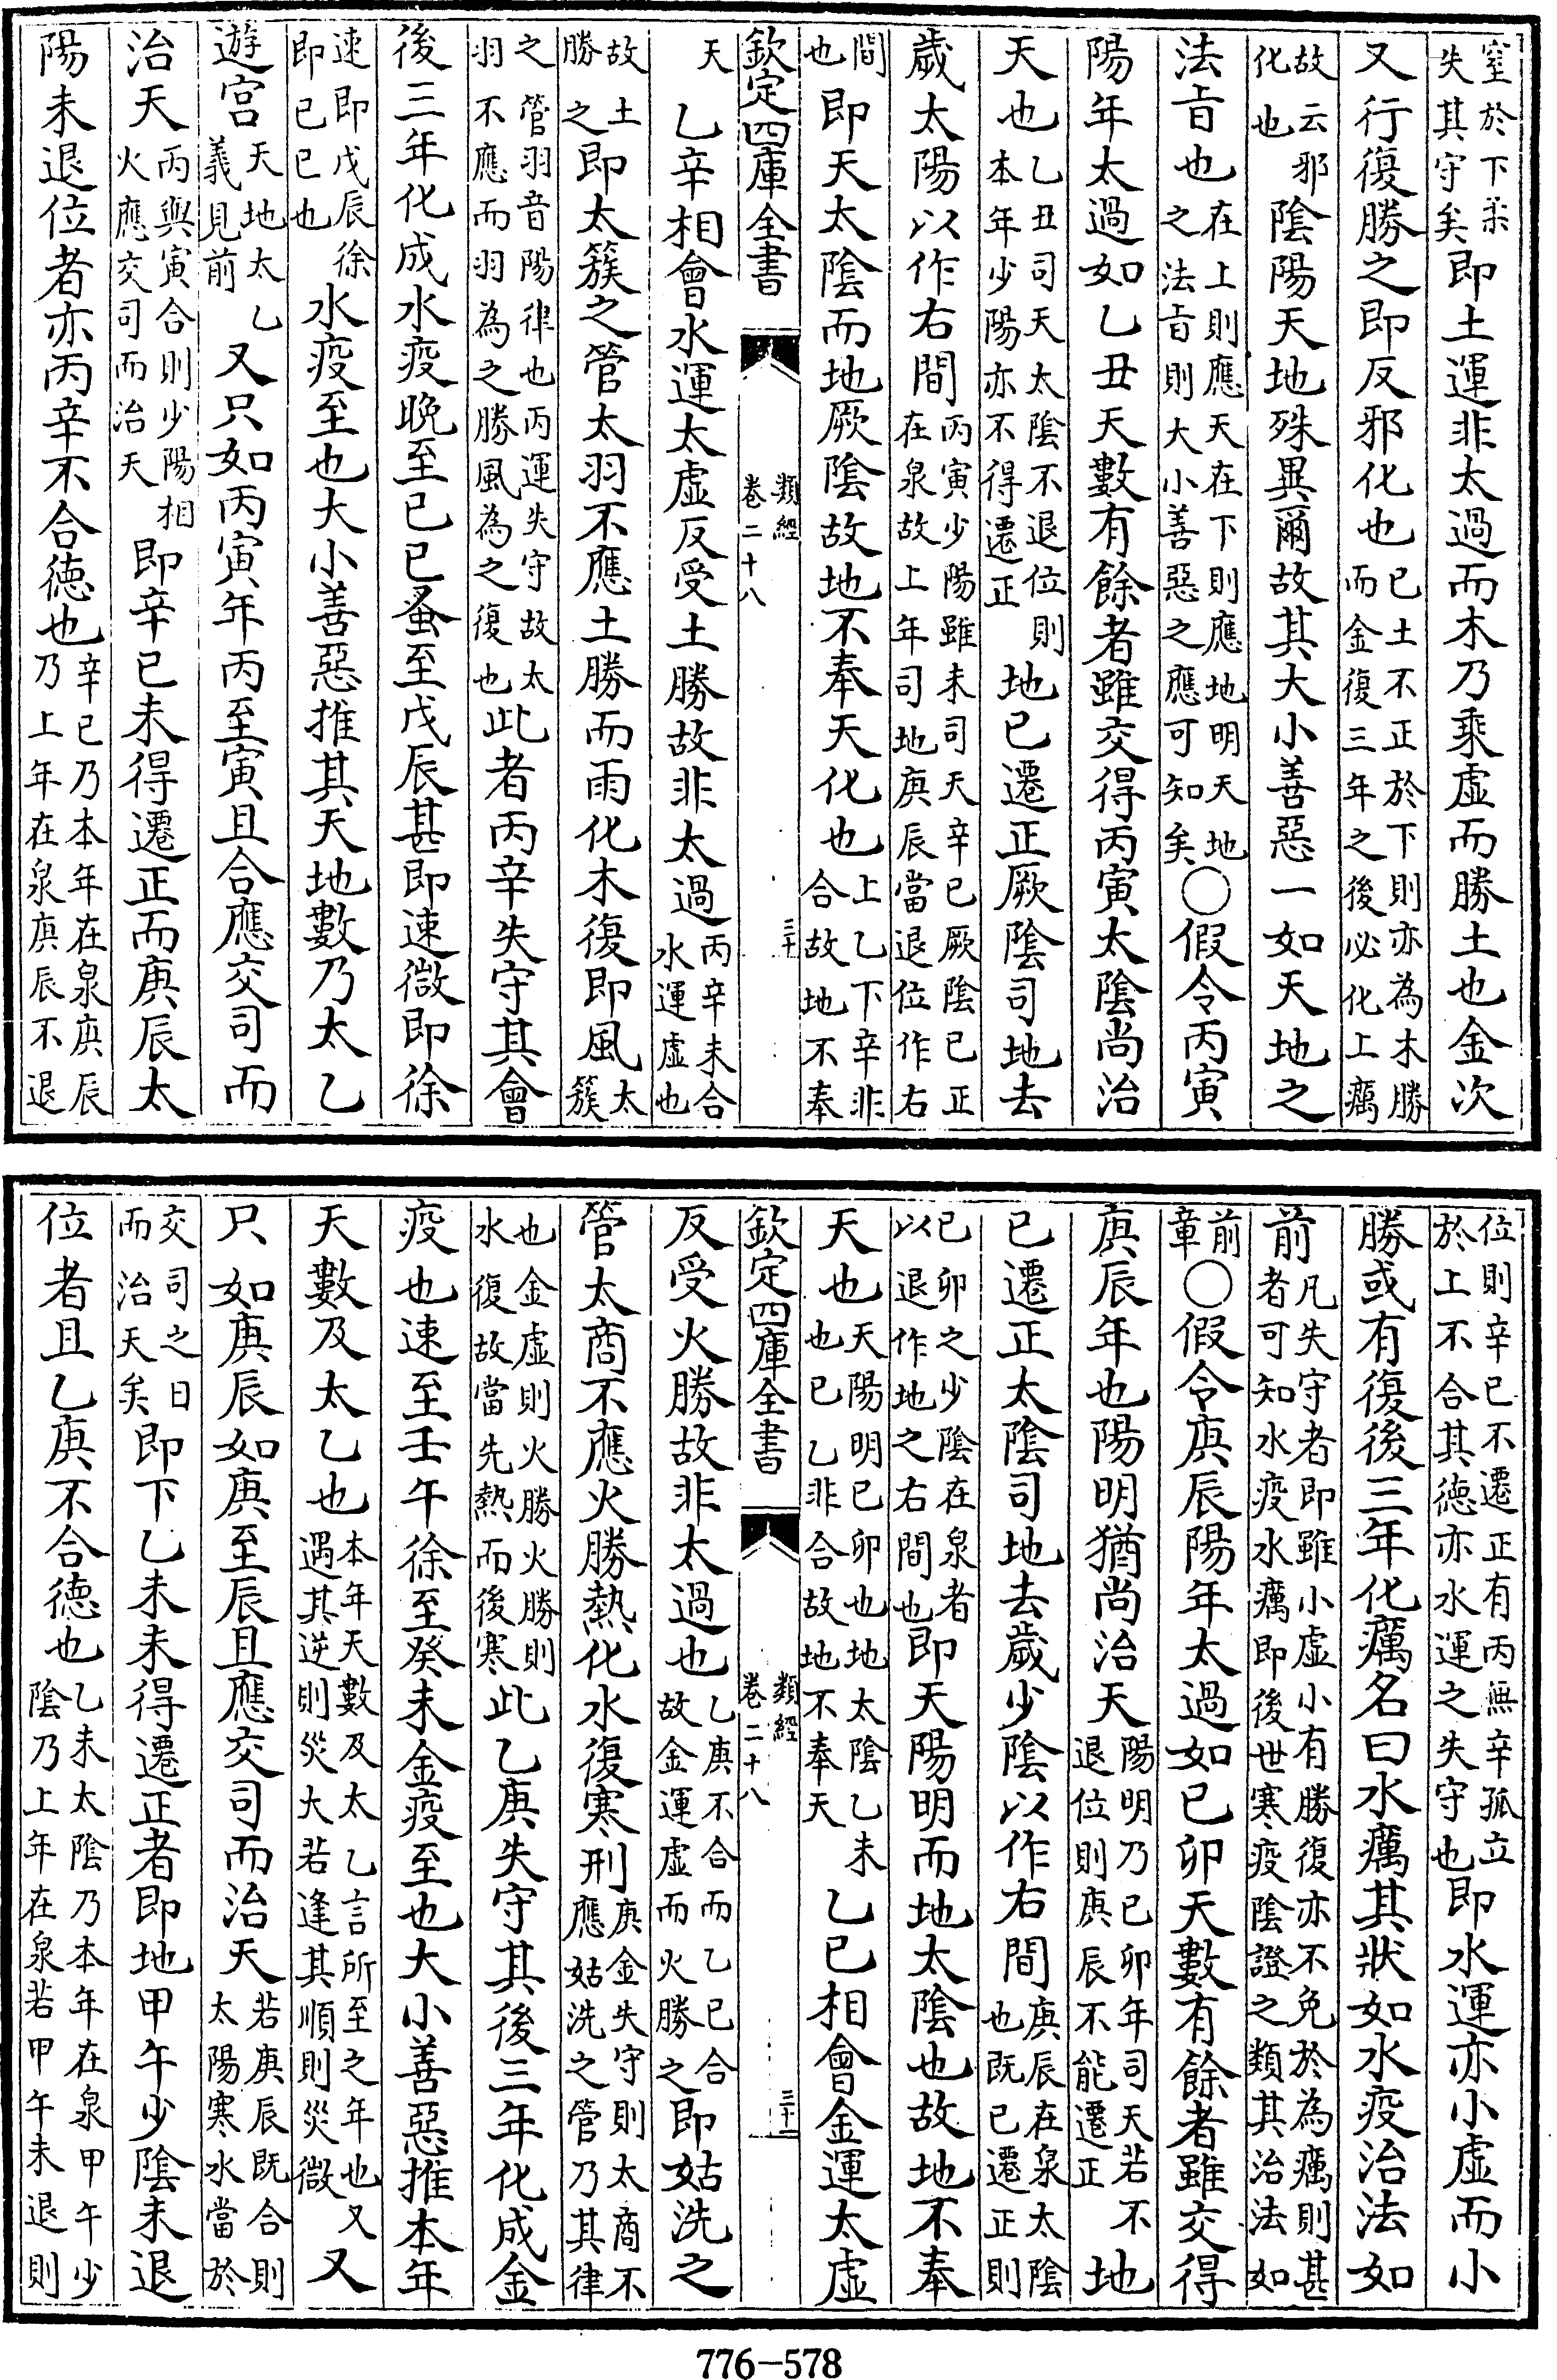 窒於下柔
失其守矣即土運非太過而木乃乘虛而勝土也金次
又行復勝之即反邪化也己土不正於下則亦為木勝
而金復三年之後必化上癘
故云邪
化也陰陽天地殊異爾故其大小善惡一如天地之
法旨也在上則應天在下則應地明天地
之法旨則大小善惡之應可知矣○假令丙寅
陽年太過如乙丑天數有餘者雖交得丙寅太陰尚治
天也乙丑司天太陰不退位則
本年少陽亦不得遷正地已遷正厥陰司地去
歲太陽以作右間丙寅少陽雖未司天辛巳厥陰已正
在泉故上年司地庚辰當退位作右
間
也即天太陰而地厥陰故地不奉天化也上乙下辛非
合故地不奉
欽定四庫全書
類經
卷二十八
三十
天
乙辛相會水運太虛反受土勝故非太過丙辛未合
水運虛也
故土
勝之即太簇之管太羽不應土勝而雨化木復即風太
簇
之管羽音陽律也丙運失守故太
羽不應而羽為之勝風為之復也此者丙辛失守其會
後三年化成水疫晚至己巳蚤至戊辰甚即速微即徐
速即戊辰徐
即己巳也水疫至也大小善惡推其天地數乃太乙
遊宮天地太乙
義見前又只如丙寅年丙至寅且合應交司而
治天丙與寅合則少陽相
火應交司而治天即辛巳未得遷正而庚辰太
陽未退位者亦丙辛不合德也辛巳乃本年在泉庚辰
乃上年在泉庚辰不退
位則辛巳不遷正有丙無辛孤立
於上不合其德亦水運之失守也即水運亦小虛而小
勝或有復後三年化癘名曰水癘其狀如水疫治法如
前凡失守者即雖小虛小有勝復亦不免於為癘則甚
者可知水疫水癘即後世寒疫陰證之類其治法如
前
章○假令庚辰陽年太過如己卯天數有餘者雖交得
庚辰年也陽明猶尚治天陽明乃己卯年司天若不
退位則庚辰不能遷正地
已遷正太陰司地去歲少陰以作右間庚辰在泉太陰
也既已遷正則
己卯之少陰在泉者
以退作地之右間也即天陽明而地太陰也故地不奉
天也天陽明己卯也地太陰乙未
也己乙非合故地不奉天乙巳相會金運太虛
欽定四庫全書
類經
卷二十八
三十一
反受火勝故非太過也乙庚不合而乙己合
故金運虛而火勝之即姑洗之
管太商不應火勝熱化水復寒刑庚金失守則太商不
應姑洗之管乃其律
也金虛則火勝火勝則
水復故當先熱而後寒此乙庚失守其後三年化成金
疫也速至壬午徐至癸未金疫至也大小善惡推本年
天數及太乙也本年天數及太乙言所至之年也又
遇其逆則災大若逢其順則災微又
只如庚辰如庚至辰且應交司而治天若庚辰既合則
太陽寒水當於
交司之日
而治天矣即下乙未未得遷正者即地甲午少陰未退
位者且乙庚不合德也乙未太陰乃本年在泉甲午少
陰乃上年在泉若甲午未退則
776-578